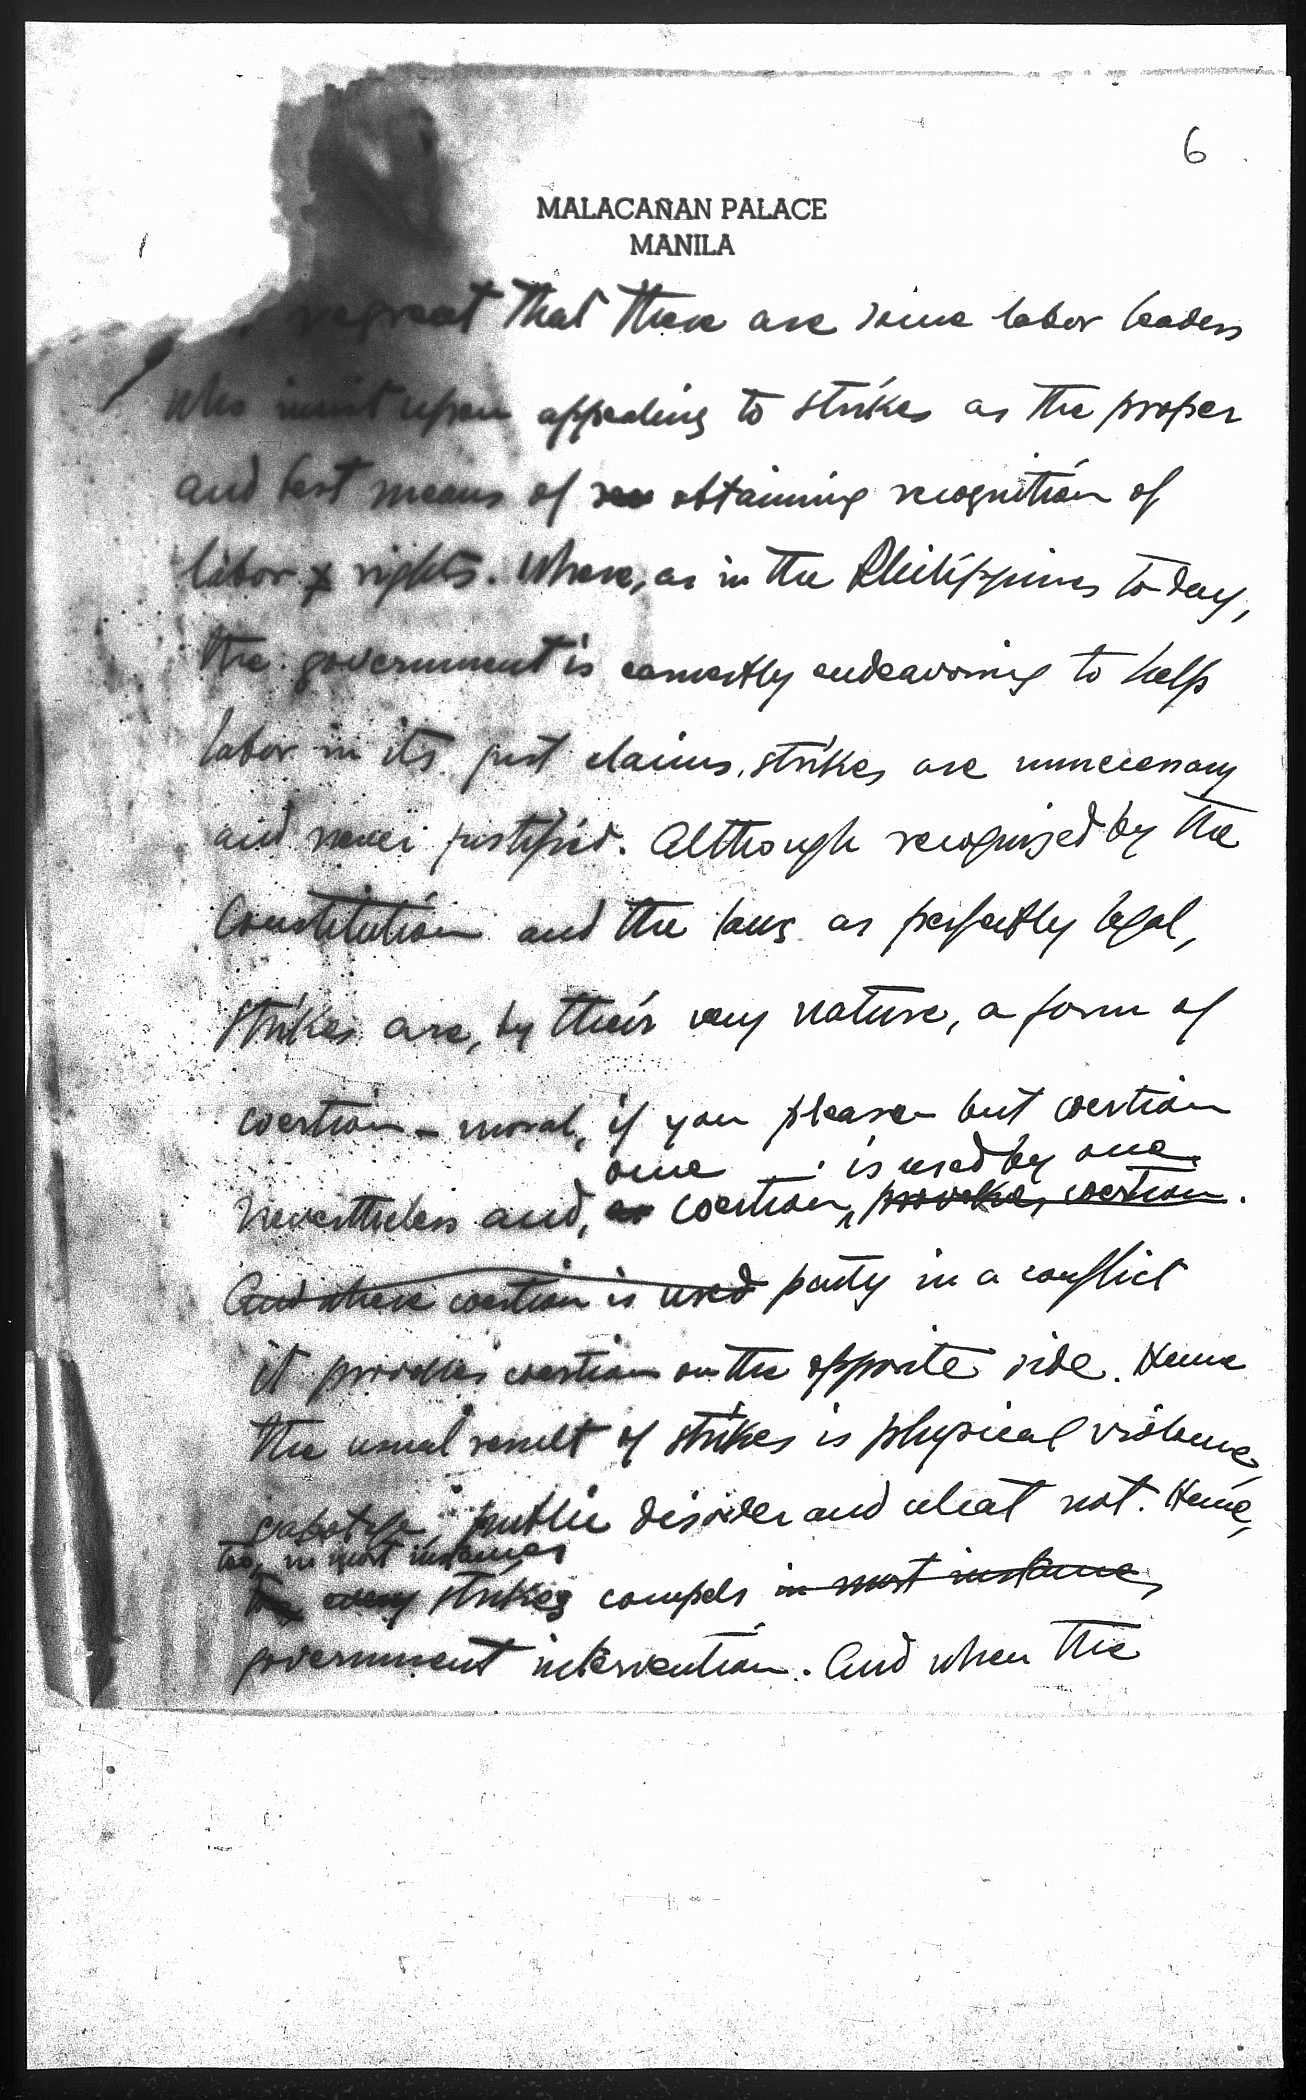 6
MALACAÑAN PALACE
MANILA
regreat that there are some labor leaders
who insist upon appealing to strikes as the proper
and best means of obtaining recognition of
labor rights. Where, as in the Philippines today,
the government is earnestly endeavoring to help
labor in its just claims, strikes are unnecessary
and never justified. Although recognized by the
Constitution and the laws as perfectly legal,
strikes are, by their very nature, a form of
coertion - moral, if you please - but coertion
once is used by one
nevertheless and, as coertion, provokes coertion.
And where coertion is used party in a conflict
it provokes coertion on the opposite side. Hence
the usual result of strikes is physical violence,
sabotage, public disorder and what not. Hence,
too, in most instances
too every strikes compels in most instance,
government intervention. And when the